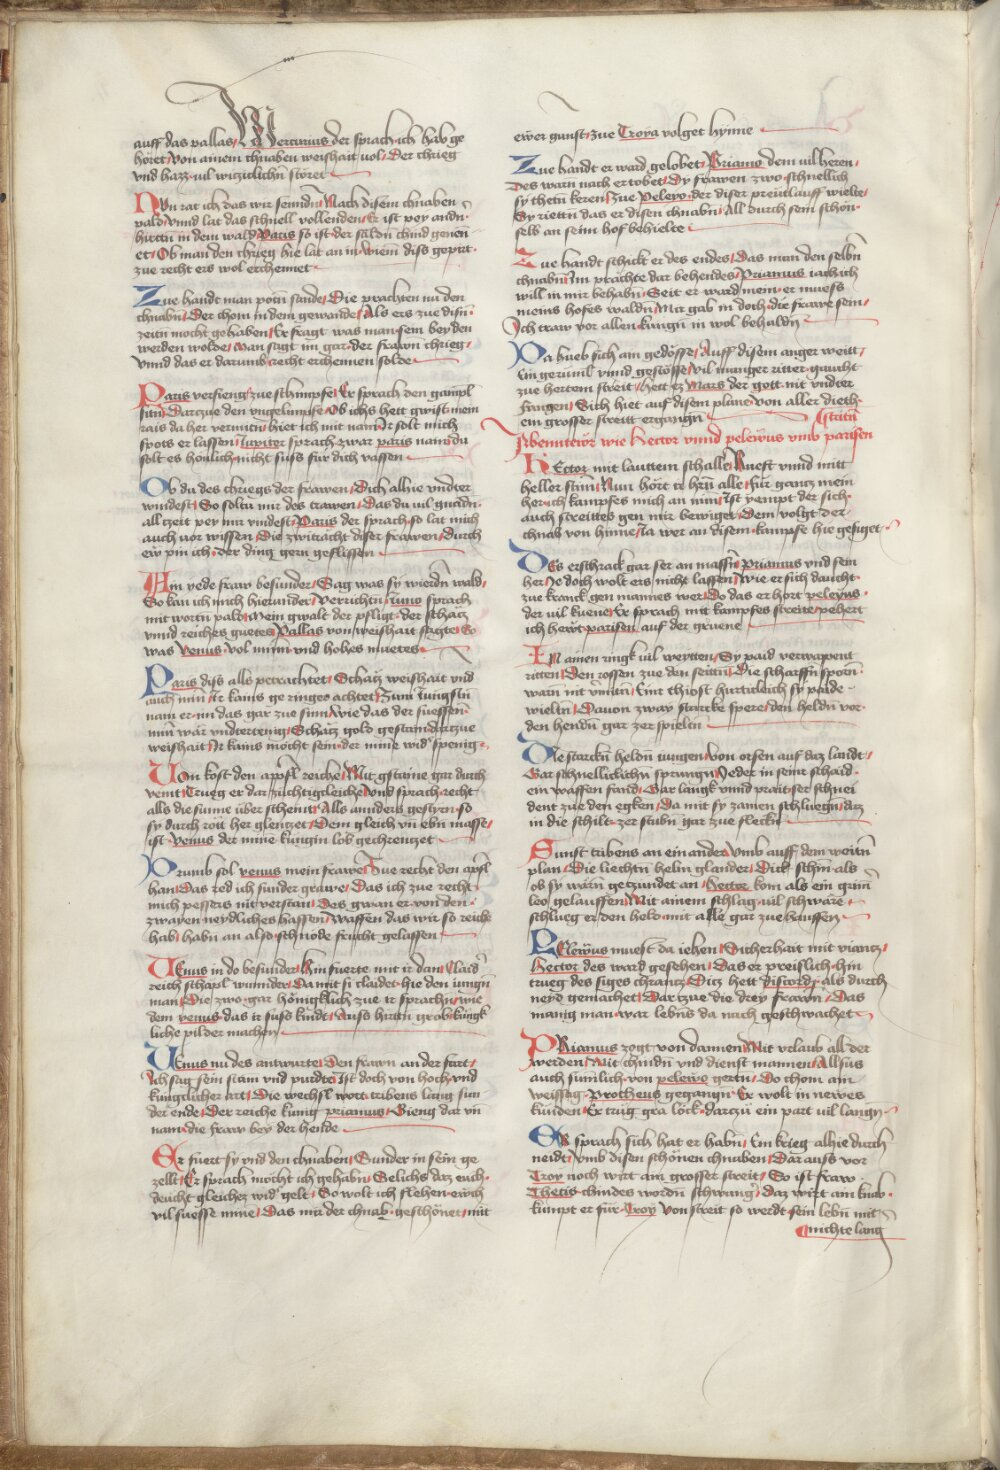 auff das pallas / Mercurius der sprach ich hab ge
höret / von ainem chnaben weishait uol / Der chrieg
vnd hazz uil wiziclichn störet
Nun rat ich das wir senndn / Nach disem chnaben
pald / vnnd lat das schnell vollenden / Er ist pey andn
hirttn in dem wald / Paris so ist der säldn chind genen
et / Ob man den chrieg hie lat an in / Wem diss gepirt
zue recht ers wol erchennet
Zue handt man potn sande / Die prachten nu den
chnabn / Der chom in dem gewande / Als ers zue disn
zeitn mocht gehaben / Er fragt was man sein bey den
werden wolde / Man sagt im gar der frawn chrieg /
vnnd das er darumb recht erchennen solde
Paris verfieng zue schimpfe / Er sprach den gämpl
sun / Darzue den vngelimpfe / Ob ichs hett gwist mein
rais da her vermitn / hiet ich mit nam / Ir solt mich
spots er lassen / Jupiter sprach zwar paris nain du
solt es honlich nicht suss für dich vassen
Ob du des chriegs der frawen / Dich alhie vndter
windest / So soltu mir des trawen / Das du uil guetn
all zeit pey mir vindest / Paris der sprach so lat mich
auch vor wissen / Die zwitracht diser frawen / durch
ew pin ich der ding gern geflissen
Ain yede fraw besunder / Sag was sy wierdn wald /
So kan ich mich hierunder / Verrichtn / Juno sprach
mit wortn pald / Mein gwalt der pfligt der schätz
vnnd reichs guetes / Pallas von weishait sagte / So
was Venus vol minn vnd hohes muetes
Paris diss alls petrachtet / Schätz weishait vnd
auch min / Ir kains ge ringes achtet / Zum Jungstn
nam er im das gar zue sinn / Wie das der suessen
minn wär vndertenig / Schätz gold gestain dartzue
weishait / Ir kains möcht sein der mine wid' spenig
Von kost den apfl reiche / Mit gstaine gar durch
vemt / Trueg er dar züchtigcleiche / vnd sprach recht
alls die sunne über scheint / Alls annders gestyrn so
sy durch rött her glentzet / Dem gleich vn ebn masse /
ist venus der mine kungin lob gechrenzet
Darumb sol venus mein frawe / Zue recht den apfl
han / Das red ich sunder grawe / Das ich zue recht
mich pessers nit verstan / Des gwan er von den
zwayen neydliches hassen / Waffen das wir so reiche
hab / habn an also schnöde frucht gelassen
Venus in do besunder / Hin fuerte mit ir dan / Claid'
reich schapl wunnder / Da mit si claidet hie den jungn
man / Die zwo gar hönigklich zue ir sprachn / wie
dem venus das ir suss kindt / Auss hirttn grob küngk
liche pilder machen
Venus nu des antwurte / Den frawn an der fart /
Ich sag sein stam vnd purde / Ist doch von hoch vnd
kungclicher art / Die wechsl wort tribens lang hin
der ende / Der reiche kunig priamus / Gieng dar vn
nam die fraw bey der hende
Er fuert sy vnd den chnaben / Sunder in sein ge
zellt / Er sprach mocht ich gehabn / Gelichs daz euch
deucht gleichez wid' gelt / So wolt ich flehen ewch
vil suesse mine / Das mir der chnab geschönet / mit
ewer gunst / zue Troya volget hynne
Zue handt er ward gelobet / Priamo dem vil heren /
Des warn nach ertobet / Dy frawen zwo schnellich
sy thetn keren / zue Peleyo der diser preutlauff wielte /
Sy riettn das er disen chnabn / All durch sein schön
selb an seim hof behielte
Zue handt schickt er des endes / Das man den selbn
chnabn / Im prächte dar behendes / Priamus iach ich
will in mir behabn / Seit er ward mein er muess
meins hofes waldn / Mir gab in doch die frawe sein /
Ich traw vor allen kungn in wol behaldn
Da hueb sich ain gedösse / Auff disem anger weitt /
Ein gerumil vnnd gestösse / Vil manger ritter gaucht
zue hertem streit / hett ez Mars der gott mit vndter
fangen / Sich hiet auf disem plane von aller dieth
ein grosser streitt ergangn
Abenntewr wie Hector vnnd pelëus vmb parisen
Hector mit lauttem schalle / Ruest vnnd mitt
heller stim / Nun hört ir hern alle / für gantz mein
her / ich kampfes mich an nim / Ist yempt der sich
auch streittes gen mir bewiget / Dem volgt der
chnab von hinne / Ja wer an disem kampfe hie gesiget
Des erschrack gar ser an massn / Priamus vnd sein
her / Jedoch wolt ers nicht lassen / Wie er sich daucht
zue kranck gen mannes wer / Do das er hört peleyus
der vil kuene / Er sprach mit kampfes streite pehert
ich herr parisen auf der gruene
In ainen ringk uil weytten / Sy paid verwappent
ritten / Den rossen zue den seittn / Die scharffn sporn
warn nit vmitn / Eine thiost hurticleich sy paide
wieltn / Davon zway starcke spere / den heldn vor
den hendn gar zerspieltn
Die starckn heldn iungen / von orsen auf daz landt /
Gar schnellicklichn sprungn / Jeder in seiner schaid
ein waffen fand / Gar langk vnnd prait ser schnei
dent zue den egken / Da mit sy zamen schluegn / daz
in die schilt zerstubn gar zue fleckn
Sunst tribens an ein ander / vmb auff dem weitn
plan / Die liechtn helm glander / Dick schin als
ob sy wärn getzundet an / Hector kom als ein grim
leo gelauffen / Mit ainem schlag uil schwäre
schlueg er den held mit alle gar zue hauffen
Pelewus muest da iehen / Sicherhait mit viantz /
Hector des ward gesehen / Das er preislich hin
trueg des siges chrantz / Ditz hett discordz als durch
neyd gemachet / Dar tzue die drey frawn / Das
manig man war lebns da nach geschwachet
Priamus zogt von dannen / Mit vrlaub all der
werden / Mit chindn vnd dienst mannen / Allsus
auch sumlich von pelewo gertn / Do chom ain
weissag Protheus gegangn / Er wolt in newes
kunden / Er trug gra löck dartzü ein part uil langn
Er sprach sich hat er habn / Ein krieg alhie durch
neidt / vmb disen schönen chnaben / Dar auss vor
Troy noch wirt ain grosser streit / So ist fraw
Thetis chindes wordn schwang' / daz wirt ain knab
kumpt er für Troy von streit so werdt sein lebn mit
nichte lang